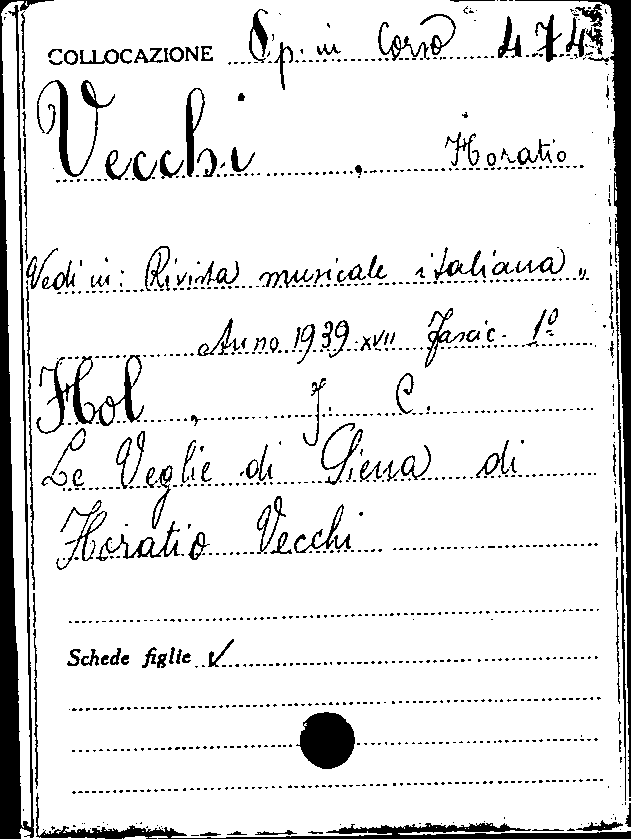 COLLOCAZIONE Op. in Corso 474
Vecchi, Horatio
Vedi in: Rivista musicale italiana „
Anno 1939-XVII Fascic. 1º
Hol, J. C.
Le Veglie di Siena di
Horatio Vecchi
Schede figlie ✓